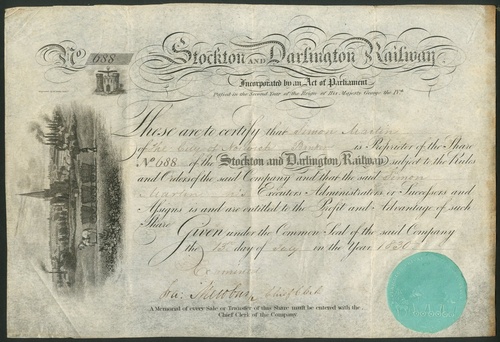 No. 688
Stockton AND Darlington Railway.
Incorporated by an Act of Parliament
Passed in the Second Year of the Reign of His Majesty George the IVth.
These are to certify that Simon Martin
of the City of Norwich Banker is Proprietor of the Share
No. 688 of the Stockton and Darlington Railway subject to the Rules
and Orders of the said Company and that the said Simon
Martin his Executors Administrators or Successors and
Assigns is and are entitled to the Profit and Advantage of such
Share Given under the Common Seal of the said Company
the day of July in the Year
Examined
Clerk
A Memorial of every Sale or Transfer of this Share must be entered with the
Chief Clerk of the Company